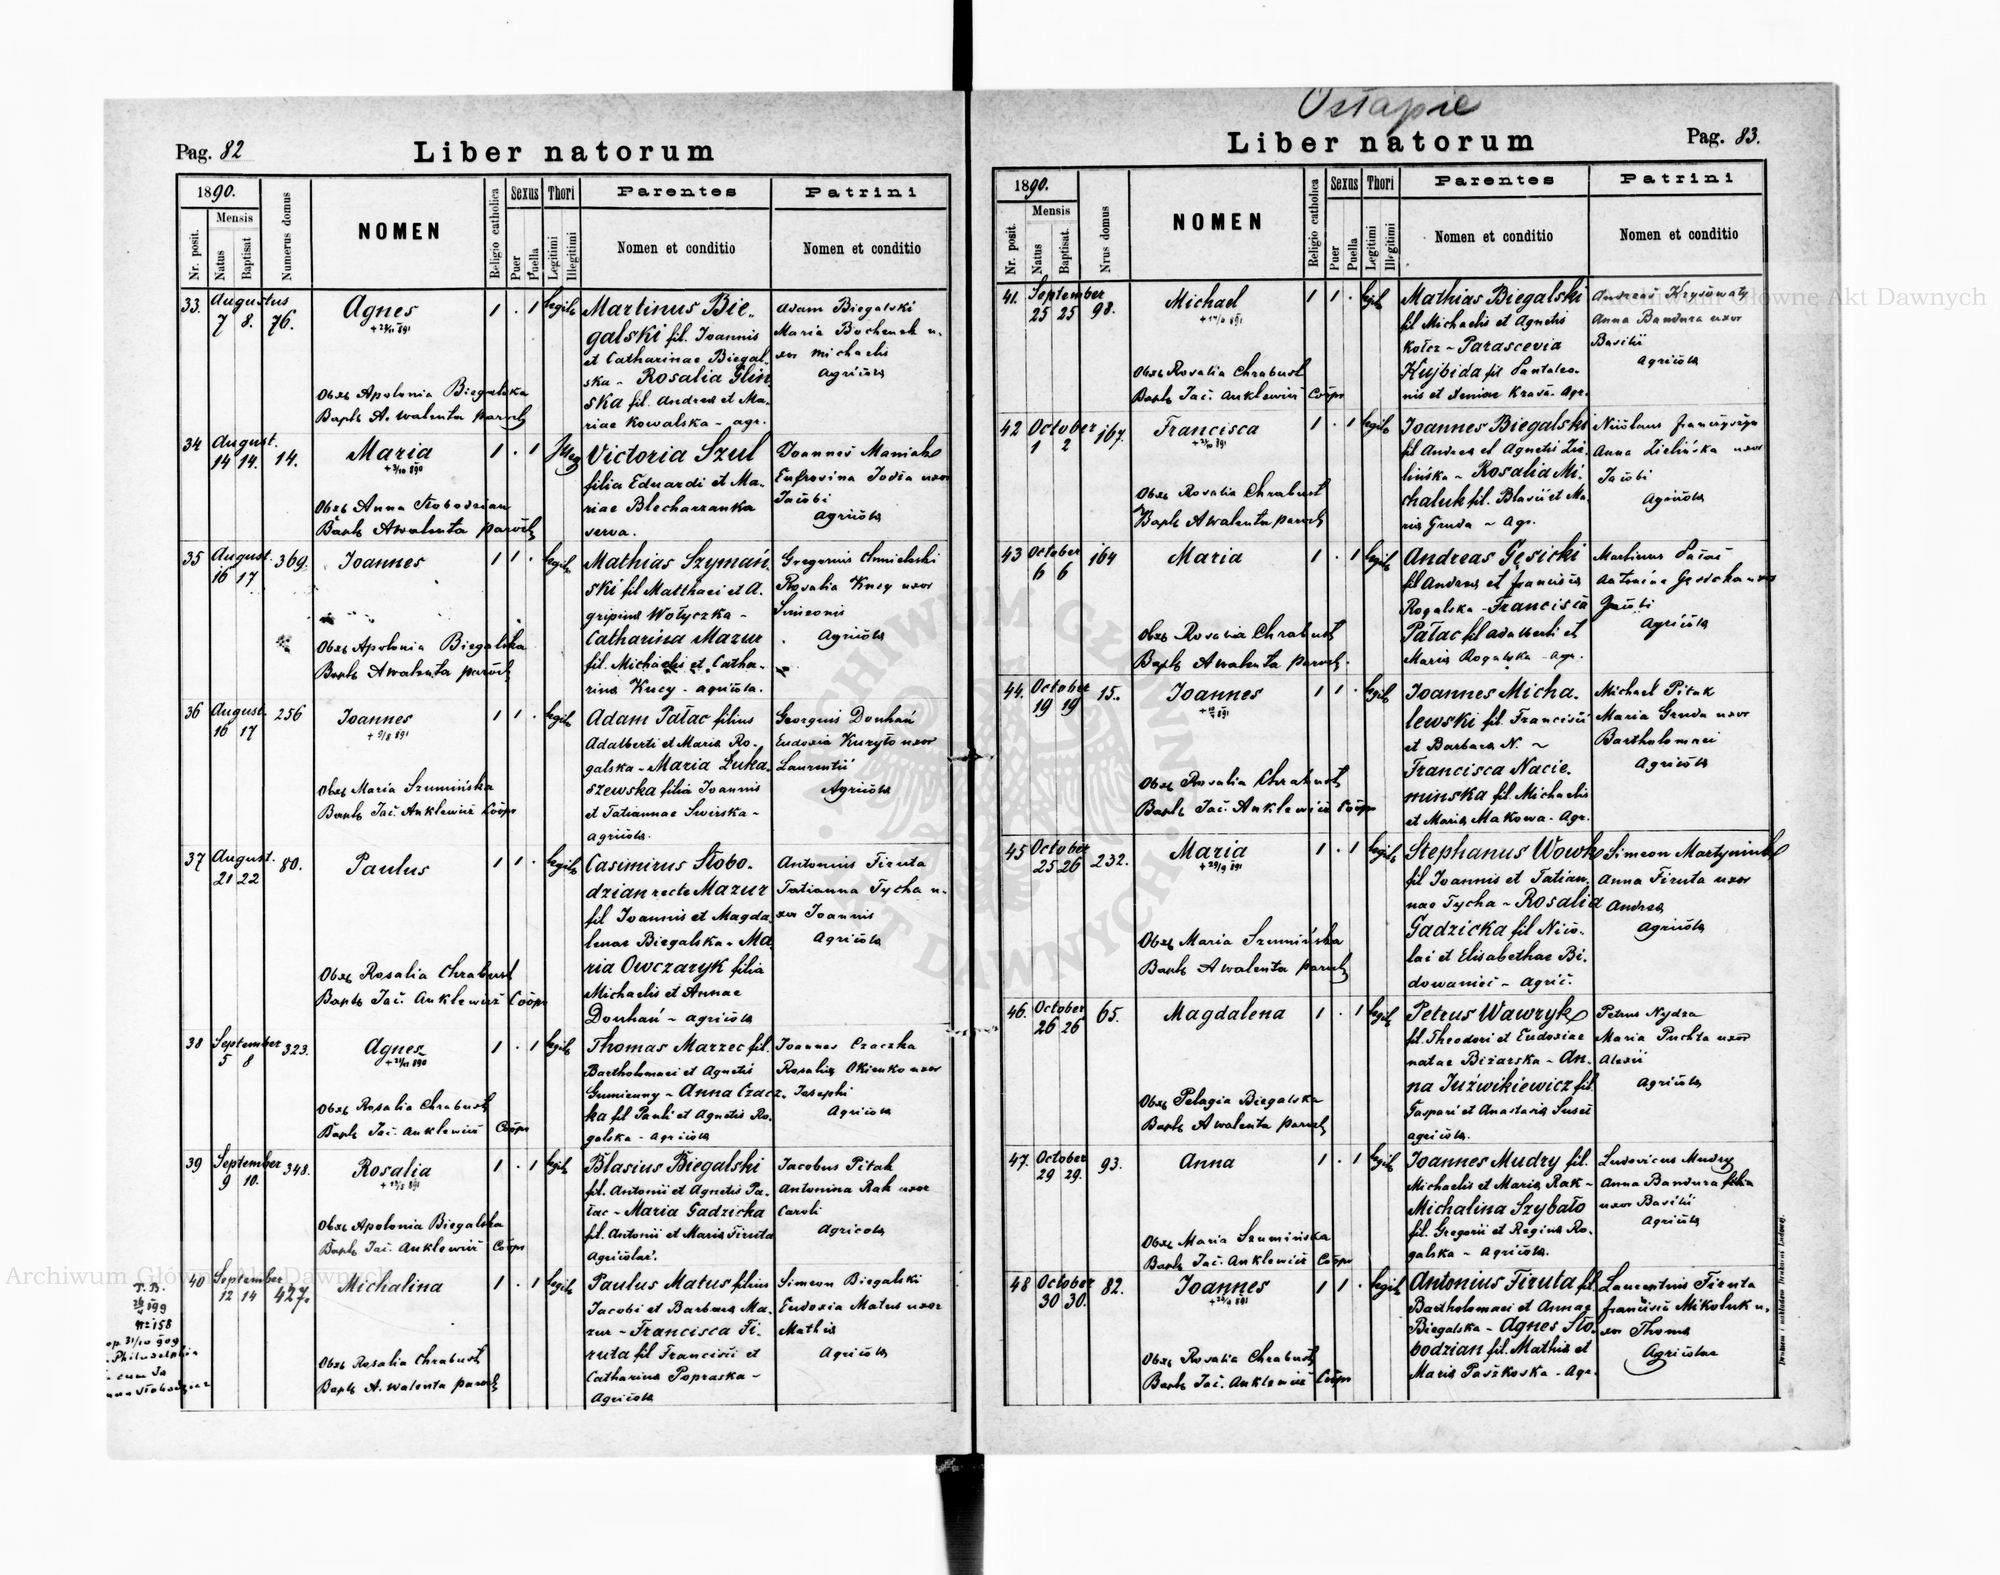 Ostapie
Pag. 82
Liber natorum
1890.
Nr. posit.
Mensis
Natus
Baptisat
Numerus domus
NOMEN
Religio catholica
Sexus
Puer
Puella
Thori
Legitimi
Illegitimi
Parentes
Nomen et conditio
Patrini
Nomen et conditio
33 Augustus 7 8. 76. Agnes 1 . 1 legit
Obst Apolonia Biegalska
Bapt A. Walenta paroch
Martinus Bie-
galski fil. Joannis
et Catharinae Biegal-
ska - Rosalia Glin
ska fil. Andreae et Ma-
riae Kowalska - agr.
Adam Biegalski
Maria Bochenek u-
xor Michaelis
Agricola
34 August. 14 14. 14. Maria 1 . 1 Illeg
+ 3/10 890
Obst Anna Słobodzian
Bapt A Walenta paroch
Victoria Szul
filia Eduardi et Ma-
riae Blecharzanka
serva.
Joannes Maniak
Eufrosina Jodia uxor
Jacobi
Agricola
35 August. 16 17 369. Joannes 1 1 . legit
Obst Apolonia Biegalska
Bapt A Walenta paroch
Mathias Szymań-
ski fil Matthaei et A-
gripina Wołyczka -
Catharina Mazur
fil. Michaelis et Catha-
rina Kucy - agricola.
Gregorius Chmielski
Rosalia Kucy uxor
Simeonis
Agricola
36 August. 16 17 256 Joannes 1 1 . legit
+ 9/8 891
Obst Maria Szumińska
Bapt Jac. Anklewicz Coop
Adam Pałac filius
Adalberti et Maria Ro-
galska - Maria Łuka-
szewska filia Joannis
et Tatiannae Swirska -
agricola.
Georgius Douhań
Eudoxia Kuryło uxor
Laurentii
Agricola
37 August. 21 22 80. Paulus 1 1 . legit
Obst Rosalia Chrabust
Bapt Jac. Anklewicz Coop
Casimirus Słobo-
dzian recte Mazur
fil Joannis et Magda
lenae Biegalska - Ma
ria Owczaryk filia
Michaelis et Annae
Douhań - agricola
Antonius Firuta
Tatianna Tycha u-
xor Joannis
Agricola
38 September 5 8 323. Agnes 1 . 1 legit
Obst Rosalia Chrabust
Bapt Jac. Anklewicz Coop
Thomas Marzec fil.
Bartholomaei et Agnetis
Gumienny - Anna Czacz-
ka fil Pauli et Agnetis Ro-
galska - agricola
Joannes Czaczka
Rosalia Okienko uxor
Josephi
Agricola
39 September 9 10. 348. Rosalia 1 . 1 legit
Obst Apolonia Biegalska
Bapt Jac. Anklewicz Coop
Blasius Biegalski
fil. Antonii et Agnetis Pa-
łac - Maria Gadzicka
fil. Antonii et Maria Firuta
Agricolae.
Jacobus Pitak
Antonina Rak uxor
Caroli
Agricola
40 September 12 14 427. Michalina 1 . 1 legit
Obst Rosalia Chrabust
Bapt A. Walenta paroch
Paulus Matus filius
Jacobi et Barbara Ma-
zur - Francisca Fi-
ruta fil Francisci et
Catharina Popraska -
Agricola
Simeon Biegalski
Eudoxia Matus uxor
Mathia
Agricola
Philadelphia
Liber natorum
Pag. 83.
1890.
Nr. posit.
Mensis
Natus
Baptisat.
Nrus domus
NOMEN
Religio catholica
Sexus
Puer
Puella
Thori
Legitimi
Illegitimi
Parentes
Nomen et conditio
Patrini
Nomen et conditio
41. September 25 25 98. Michael 1 1 . legit
Obst Rosalia Chrabust
Bapt Jac. Anklewicz Coop
Mathias Biegalski
fil Michaelis et Agnetis
Kołcz - Parascevia
Kujbida fil Pantaleo-
nis et Xeniae Krasi - Agr.
Anna Bandura uxor
Basilii
Agricola
42 October 1 2 167. Francisca 1 . 1 legit
Obst Rosalia Chrabust
Bapt A Walenta paroch
Joannes Biegalski
fil Andreae et Agnetis Zie-
lińska - Rosalia Mi-
chaluk fil. Blasii et Ma
ria Gruda - Agr.
Anna Zielińska uxor
Jacobi
Agricola
43 October 6 6 164 Maria 1 . 1 legit
Obst Rosalia Chrabust
Bapt A Walenta paroch.
Andreas Gęsicki
fil Andreae et Francisca
Rogalska - Francisca
Pałac fil Adalberti et
Maria Rogalska - agr.
Martinus Pałac
Antonina Gęsicka uxor
Jacobi
Agricola
44. October 19 19 15. Joannes 1 1 . legit
Obst Rosalia Chrabust
Bapt Jac. Anklewicz Coop
Joannes Micha-
lewski fil. Francisci
et Barbara N. ~
Francisca Nacie-
minska fil. Michaelis
et Maria Makowa - Agr.
Michael Pitak
Maria Gruda uxor
Bartholomaei
Agricola
45 October 25 26 232. Maria 1 . 1 legit
Obst Maria Szumińska
Bapt A Walenta paroch
Stephanus Wowk
fil Joannis et Tatian-
nae Tycha - Rosalia
Gadzicka fil Nico-
lai et Elisabethae Bi-
dowaniec - agric.
Simeon Martyniuk
Anna Firuta uxor
Andrea
Agricola
46. October 26 26 65. Magdalena 1 . 1 legit
Obst Pelagia Biegalska
Bapt A Walenta paroch
Petrus Wawryk
fil. Theodori et Eudoxiae
natae Bizarska - An-
na Juźwikiewicz fil
Caspari et Anastasia Susec
agricola.
Petrus Nydza
Maria Puchta uxor
Alexii
Agricola
47. October 29 29. 93. Anna 1 . 1 legit
Obst Maria Szumińska
Bapt Jac. Anklewicz Coop
Joannes Mudry fil.
Michaelis et Maria Rak -
Michalina Szybato
fil. Gregorii et Regina Ro-
galska - Agricola.
Ludovicus Mudry
Anna Bandura filia
uxor Basilii
Agricola
48 October 30 30. 82. Joannes 1 1 . legit
Obst Rosalia Chrabust
Bapt Jac. Anklewicz Coop
Antonius Firuta fil.
Bartholomaei et Annae
Biegalska - Agnes Sło-
bodzian fil. Mathia et
Maria Paszkoska - Agr.
Laurentius Firuta
Francisca Mikoluk u-
xor Thoma
Agricolae
Archiwum Główne Akt Dawnych
Archiwum Główne Akt Dawnych
ARCHIWUM GŁÓWNE AKT DAWNYCH